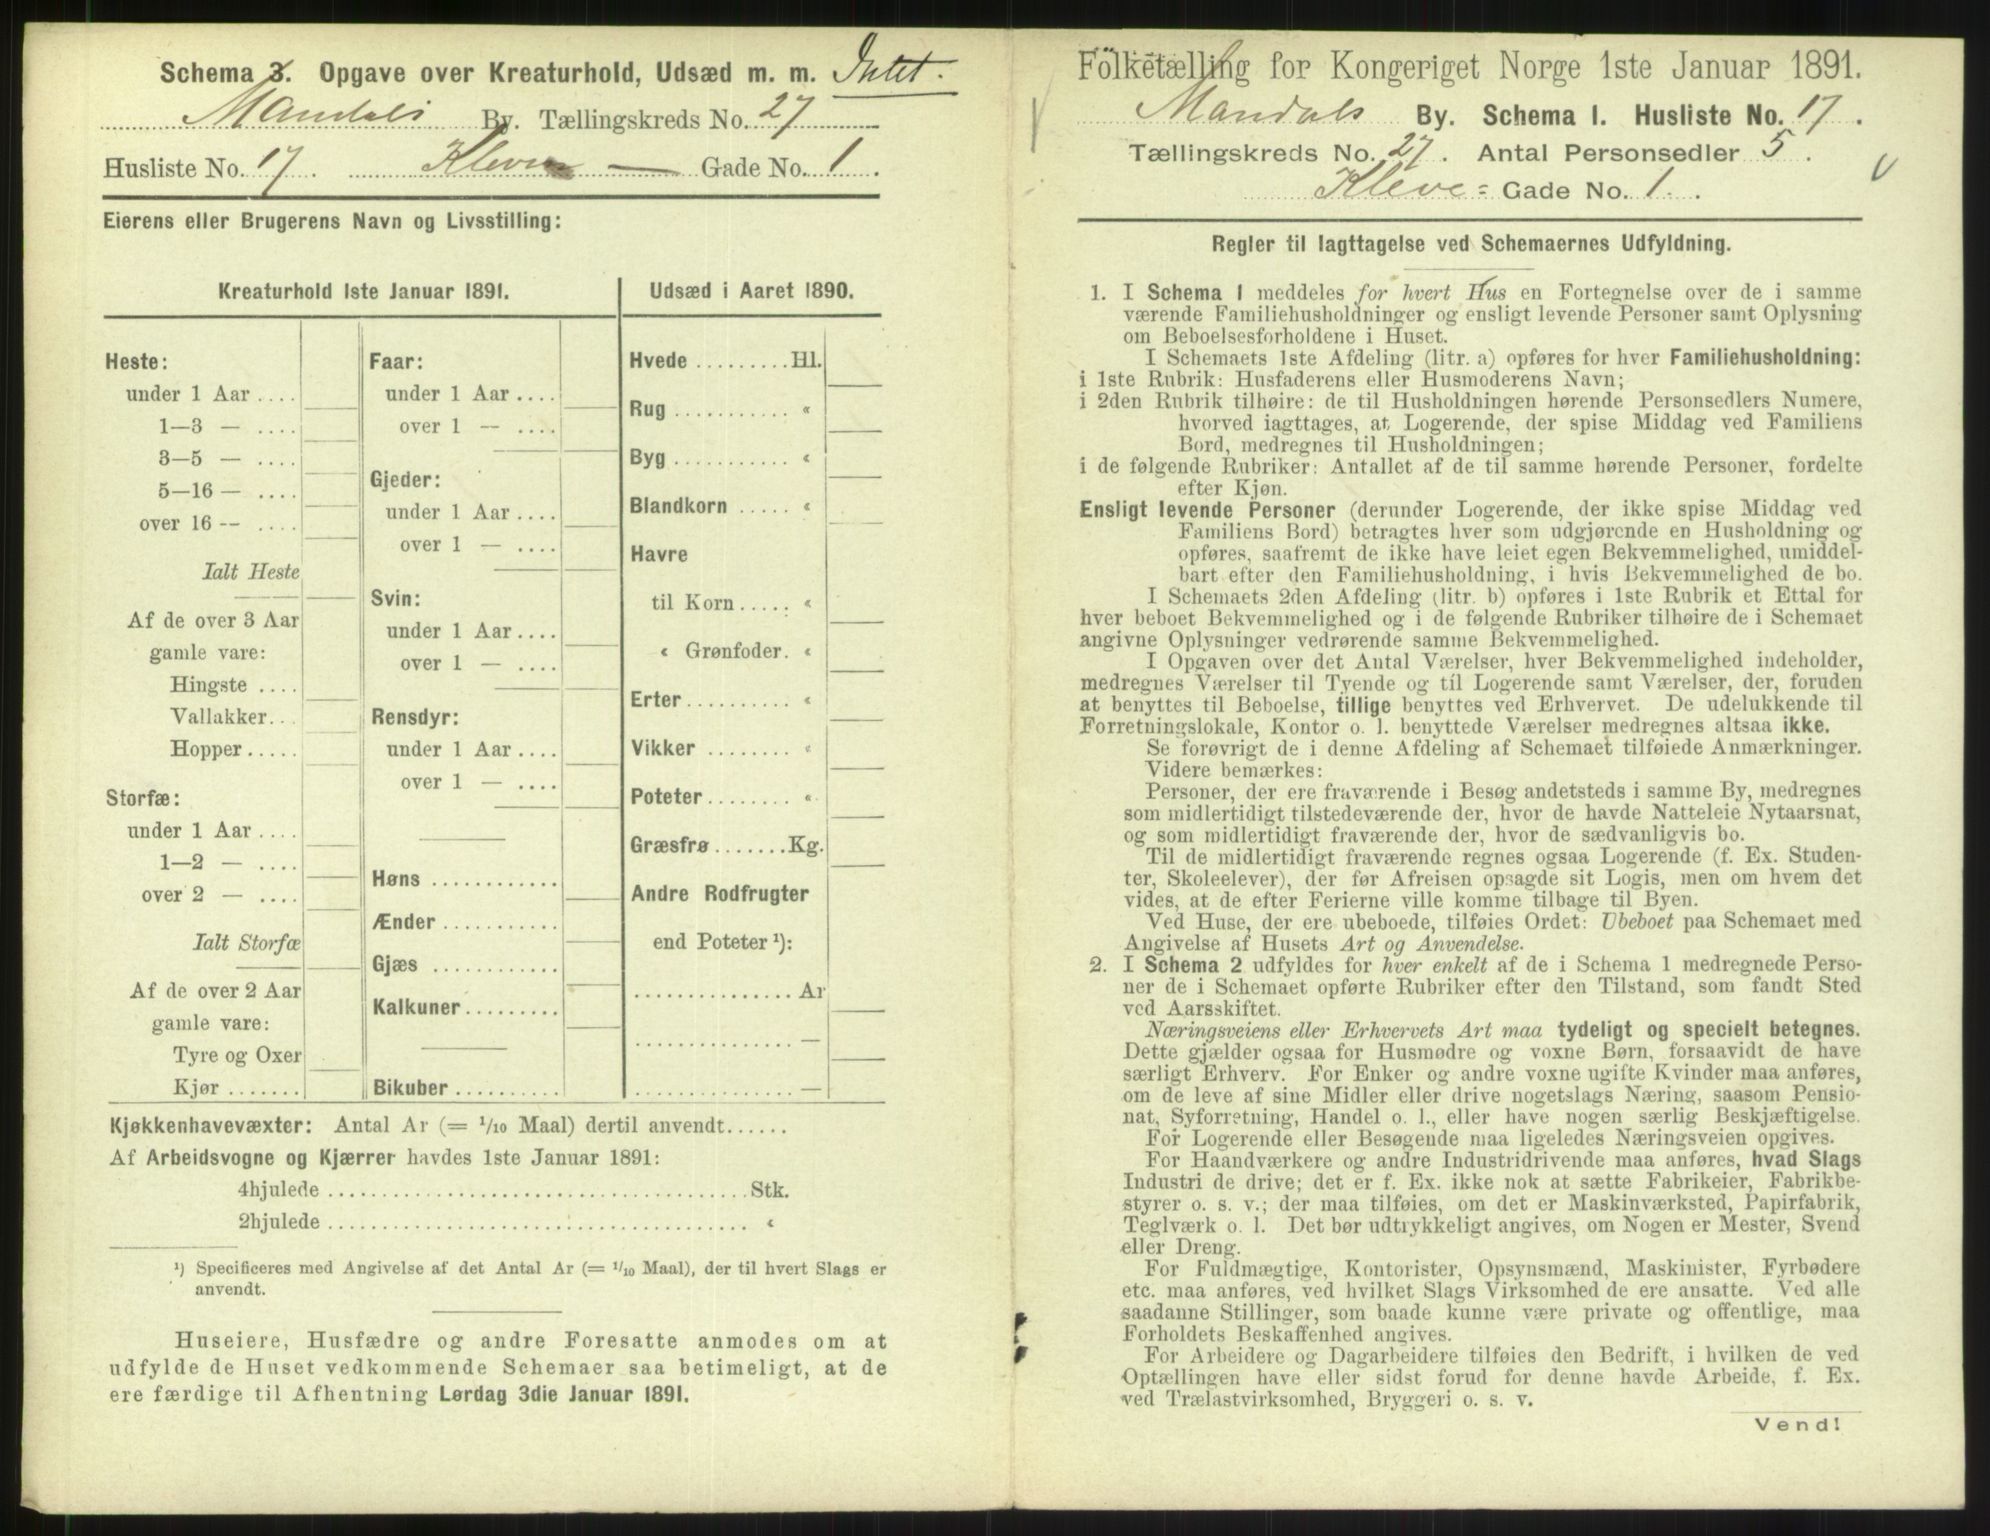 Schema 3. Opgave over Kreaturhold, Udsæd m. m. Intet.
Mandals By. Tællingskreds No. 27
Husliste No. 17. Kleven — Gade No. 1.
Eierens eller Brugerens Navn og Livsstilling:
Kreaturhold 1ste Januar 1891.
Heste:
under 1 Aar ....
1—3 — ....
3—5 — ....
5—16 — ....
over 16 — ....
Ialt Heste
Af de over 3 Aar
gamle vare:
Hingste ....
Vallakker...
Hopper.....
Storfæ:
under 1 Aar ....
1—2 — ....
over 2 — ....
Ialt Storfæ
Af de over 2 Aar
gamle vare:
Tyre og Oxer
Kjør.......
Faar:
under 1 Aar ....
over 1 — ....
Gjeder:
under 1 Aar ....
over 1 — ....
Svin:
under 1 Aar ....
over 1 — ....
Rensdyr:
under 1 Aar ....
over 1 — ....
Høns ............
Ænder ...........
Gjæs ............
Kalkuner.........
Bikuber..........
Udsæd i Aaret 1890.
Hvede .........Hl.
Rug ........... «
Byg ........... «
Blandkorn ..... «
Havre
til Korn ..... «
« Grønfoder. «
Erter.......... «
Vikker ........ «
Poteter........ «
Græsfrø.......Kg.
Andre Rodfrugter
end Poteter ¹):
...............Ar
............... —
............... —
Kjøkkenhavevæxter: Antal Ar (= 1/10 Maal) dertil anvendt......
Af Arbeidsvogne og Kjærrer havdes 1ste Januar 1891:
4hjulede ........................................Stk.
2hjulede ........................................ «
¹) Specificeres med Angivelse af det Antal Ar (= 1/10 Maal), der til hvert Slags er
anvendt.
Huseiere, Husfædre og andre Foresatte anmodes om at
udfylde de Huset vedkommende Schemaer saa betimeligt, at de
ere færdige til Afhentning Lørdag 3die Januar 1891.
Folketælling for Kongeriget Norge 1ste Januar 1891.
Mandals By. Schema I. Husliste No. 17.
Tællingskreds No. 27. Antal Personsedler 5.
Kleve = Gade No. 1.
Regler til Iagttagelse ved Schemaernes Udfyldning.
1. I Schema 1 meddeles for hvert Hus en Fortegnelse over de i samme
værende Familiehusholdninger og ensligt levende Personer samt Oplysning
om Beboelsesforholdene i Huset.
I Schemaets 1ste Afdeling (litr. a) opføres for hver Familiehusholdning:
i 1ste Rubrik: Husfaderens eller Husmoderens Navn;
i 2den Rubrik tilhøire: de til Husholdningen hørende Personsedlers Numere,
hvorved iagttages, at Logerende, der spise Middag ved Familiens
Bord, medregnes til Husholdningen;
i de følgende Rubriker: Antallet af de til samme hørende Personer, fordelte
efter Kjøn.
Ensligt levende Personer (derunder Logerende, der ikke spise Middag ved
Familiens Bord) betragtes hver som udgjørende en Husholdning og
opføres, saafremt de ikke have leiet egen Bekvemmelighed, umiddel-
bart efter den Familiehusholdning, i hvis Bekvemmelighed de bo.
I Schemaets 2den Afdeling (litr. b) opføres i 1ste Rubrik et Ettal for
hver beboet Bekvemmelighed og i de følgende Rubriker tilhøire de i Schemaet
angivne Oplysninger vedrørende samme Bekvemmelighed.
I Opgaven over det Antal Værelser, hver Bekvemmelighed indeholder,
medregnes Værelser til Tyende og til Logerende samt Værelser, der, foruden
at benyttes til Beboelse, tillige benyttes ved Erhvervet. De udelukkende til
Forretningslokale, Kontor o. l. benyttede Værelser medregnes altsaa ikke.
Se forøvrigt de i denne Afdeling af Schemaet tilføiede Anmærkninger.
Videre bemærkes:
Personer, der ere fraværende i Besøg andetsteds i samme By, medregnes
som midlertidigt tilstedeværende der, hvor de havde Natteleie Nytaarsnat,
og som midlertidigt fraværende der, hvor de sædvanligvis bo.
Til de midlertidigt fraværende regnes ogsaa Logerende (f. Ex. Studen-
ter, Skoleelever), der før Afreisen opsagde sit Logis, men om hvem det
vides, at de efter Ferierne ville komme tilbage til Byen.
Ved Huse, der ere ubeboede, tilføies Ordet: Ubeboet paa Schemaet med
Angivelse af Husets Art og Anvendelse.
2. I Schema 2 udfyldes for hver enkelt af de i Schema 1 medregnede Perso-
ner de i Schemaet opførte Rubriker efter den Tilstand, som fandt Sted
ved Aarsskiftet.
Næringsveiens eller Erhvervets Art maa tydeligt og specielt betegnes.
Dette gjælder ogsaa for Husmødre og voxne Børn, forsaavidt de have
særligt Erhverv. For Enker og andre voxne ugifte Kvinder maa anføres,
om de leve af sine Midler eller drive nogetslags Næring, saasom Pensio-
nat, Syforretning, Handel o. l., eller have nogen særlig Beskjæftigelse.
For Logerende eller Besøgende maa ligeledes Næringsveien opgives.
For Haandværkere og andre Industridrivende maa anføres, hvad Slags
Industri de drive; det er f. Ex. ikke nok at sætte Fabrikeier, Fabrikbe-
styrer o. s. v.; der maa tilføies, om det er Maskinværksted, Papirfabrik,
Teglværk o. l. Det bør udtrykkeligt angives, om Nogen er Mester, Svend
eller Dreng.
For Fuldmægtige, Kontorister, Opsynsmænd, Maskinister, Fyrbødere
etc. maa anføres, ved hvilket Slags Virksomhed de ere ansatte. Ved alle
saadanne Stillinger, som baade kunne være private og offentlige, maa
Forholdets Beskaffenhed angives.
For Arbeidere og Dagarbeidere tilføies den Bedrift, i hvilken de ved
Optællingen have eller sidst forud for denne havde Arbeide, f. Ex.
ved Trælastvirksomhed, Bryggeri o. s. v.
Vend!